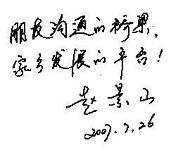 朋友沟通的桥梁，
家乡发展的平台！
赵景山
2007.7.26